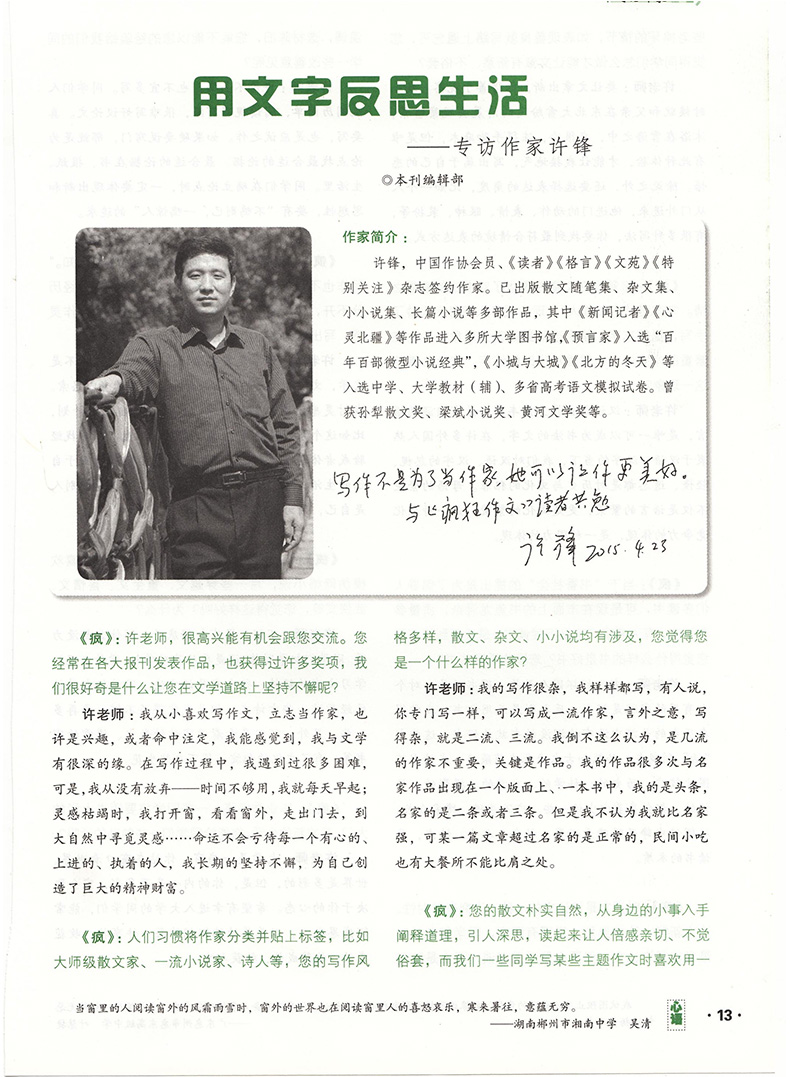 用文字反思生活
——专访作家许锋
◎本刊编辑部
作家简介：
许锋，中国作协会员、《读者》《格言》《文苑》《特
别关注》杂志签约作家。已出版散文随笔集、杂文集、
小小说集、长篇小说等多部作品，其中《新闻记者》《心
灵北疆》等作品进入多所大学图书馆，《预言家》入选“百
年百部微型小说经典”，《小城与大城》《北方的冬天》等
入选中学、大学教材（辅）、多省高考语文模拟试卷。曾
获孙犁散文奖、梁斌小说奖、黄河文学奖等。
写作不是为了当作家，她可以让你更美好。
与《疯狂作文》读者共勉
许锋 2015.4.23
《疯》：许老师，很高兴能有机会跟您交流。您
经常在各大报刊发表作品，也获得过许多奖项，我
们很好奇是什么让您在文学道路上坚持不懈呢？
许老师：我从小喜欢写作文，立志当作家，也
许是兴趣，或者命中注定，我能感觉到，我与文学
有很深的缘。在写作过程中，我遇到过很多困难，
可是，我从没有放弃——时间不够用，我就每天早起；
灵感枯竭时，我打开窗，看看窗外，走出门去，到
大自然中寻觅灵感……命运不会亏待每一个有心的、
上进的、执着的人，我长期的坚持不懈，为自己创
造了巨大的精神财富。
《疯》：人们习惯将作家分类并贴上标签，比如
大师级散文家、一流小说家、诗人等，您的写作风
格多样，散文、杂文、小小说均有涉及，您觉得您
是一个什么样的作家？
许老师：我的写作很杂，我样样都写，有人说，
你专门写一样，可以写成一流作家，言外之意，写
得杂，就是二流、三流。我倒不这么认为，是几流
的作家不重要，关键是作品。我的作品很多次与名
家作品出现在一个版面上、一本书中，我的是头条，
名家的是二条或者三条。但是我不认为我就比名家
强，可某一篇文章超过名家的是正常的，民间小吃
也有大餐所不能比肩之处。
《疯》：您的散文朴实自然，从身边的小事入手
阐释道理，引人深思，读起来让人倍感亲切、不觉
俗套，而我们一些同学写某些主题作文时喜欢用一
当窗里的人阅读窗外的风霜雨雪时，窗外的世界也在阅读窗里人的喜怒哀乐，寒来暑往，意蕴无穷。
——湖南郴州市湘南中学 吴清
心语
·13·